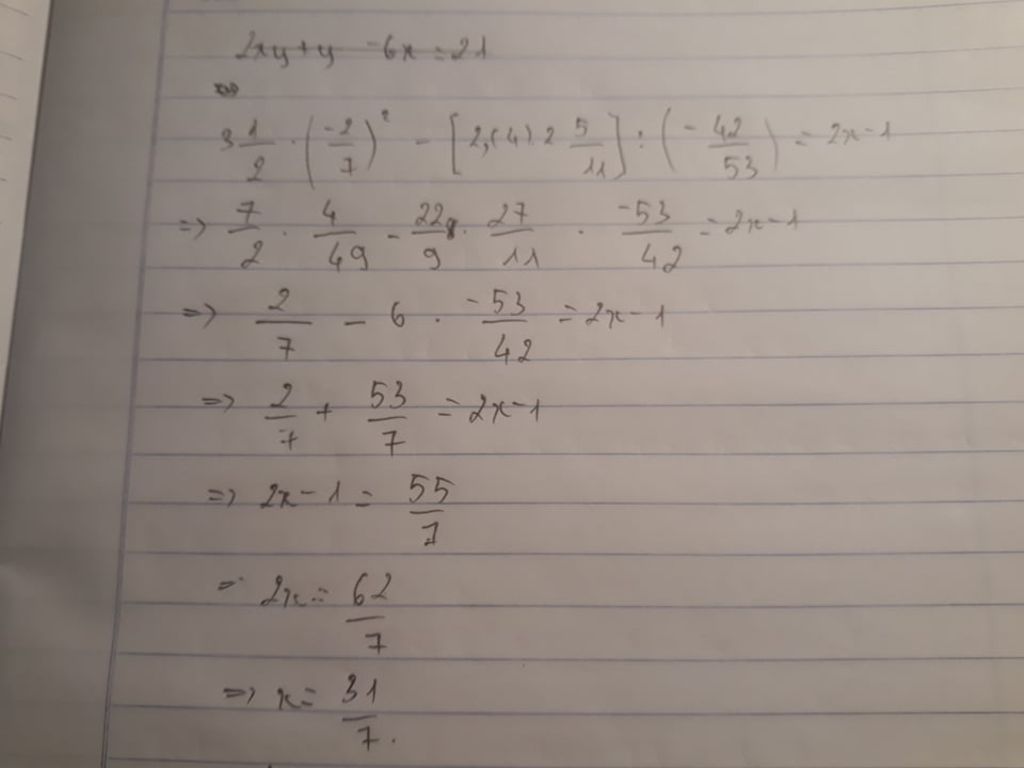 2xy + y - 6x = 21
⇔
3 1/2 . (-2/7)² - [2,(4) . 2 5/11] : (-42/53) = 2x - 1
=> 7/2 . 4/49 - 22/9 . 27/11 . -53/42 = 2x - 1
=> 2/7 - 6 . -53/42 = 2x - 1
=> 2/7 + 53/7 = 2x - 1
=> 2x - 1 = 55/7
= 2x = 62/7
=> x = 31/7.